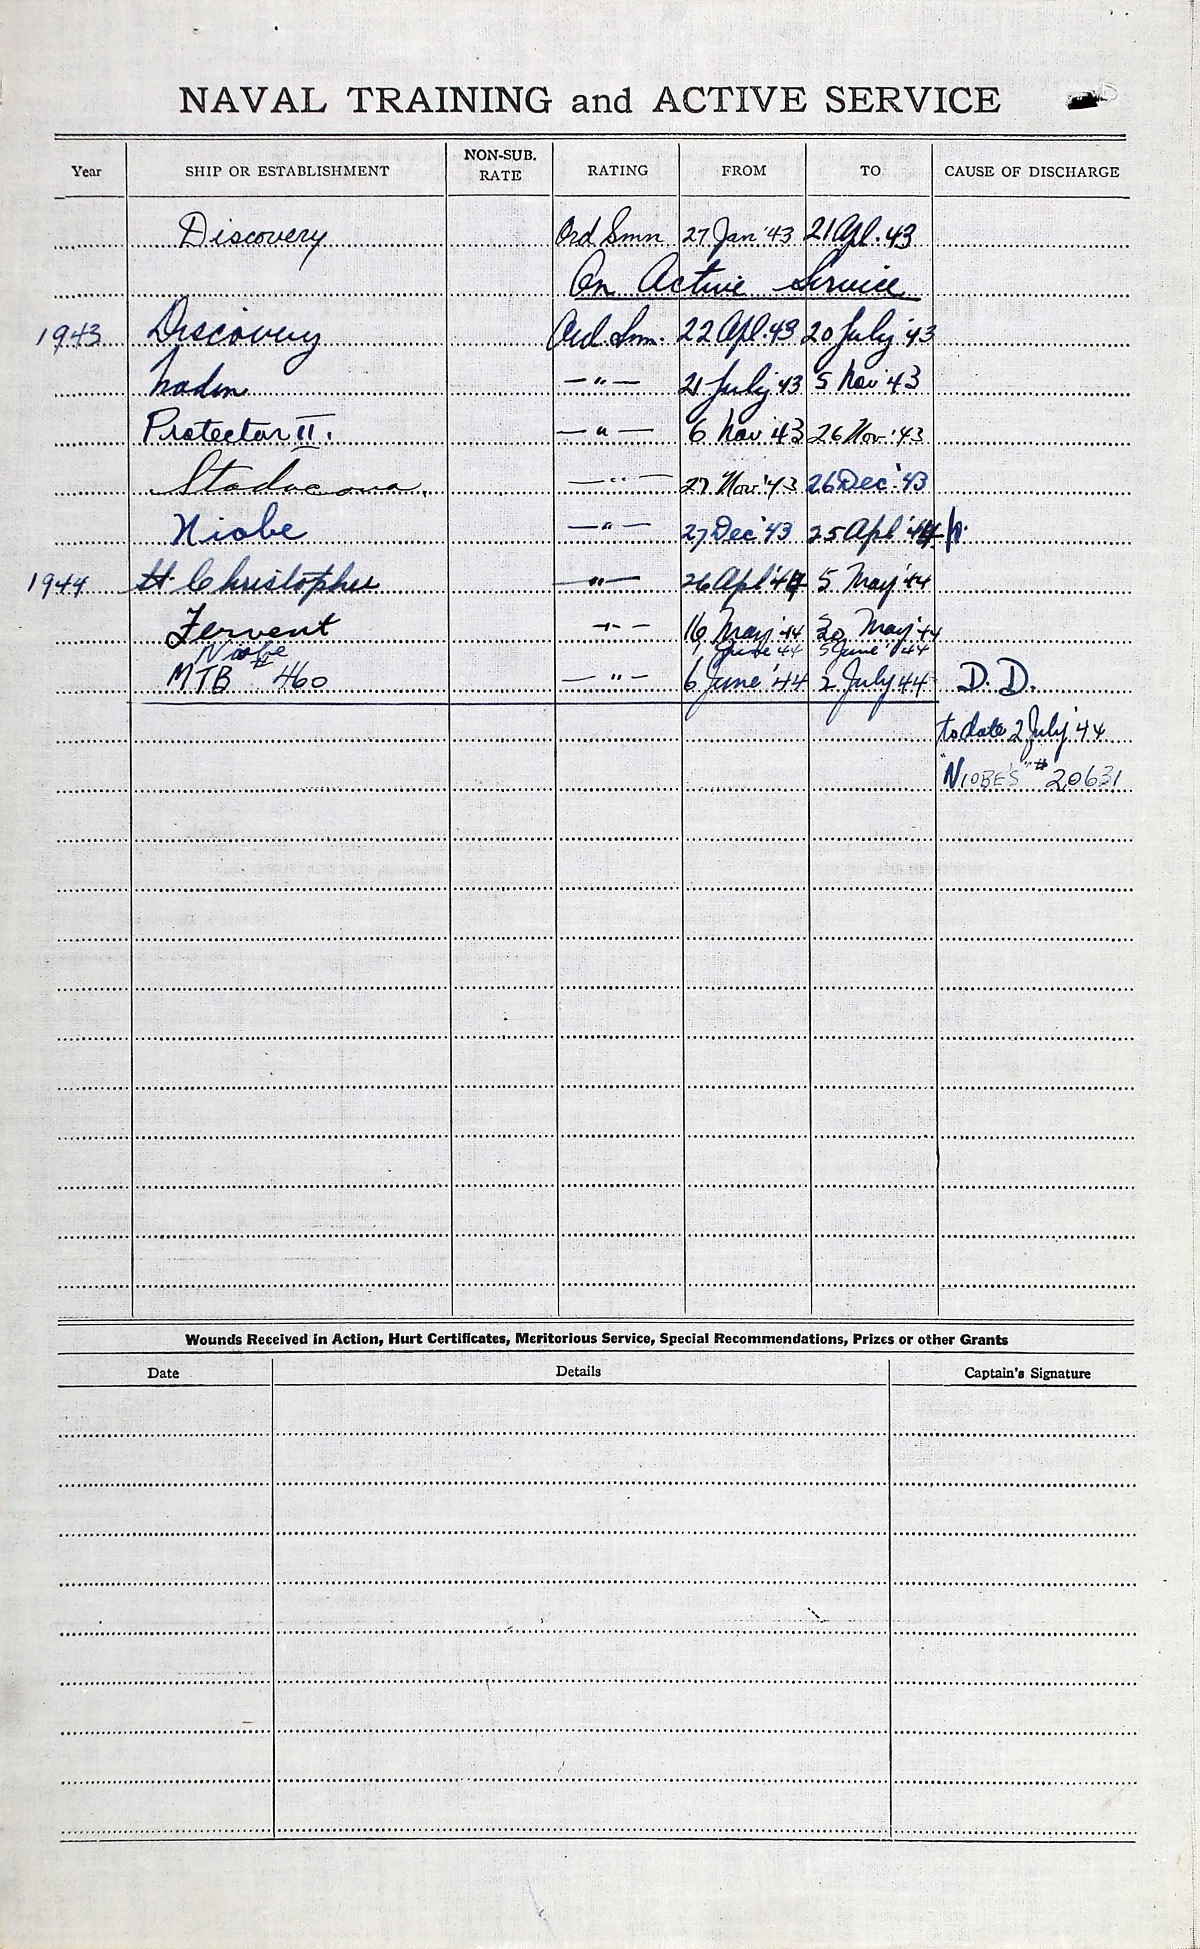 NAVAL TRAINING and ACTIVE SERVICE
Year SHIP OR ESTABLISHMENT NON-SUB. RATE RATING FROM TO CAUSE OF DISCHARGE
Discovery Ord Smn 27 Jan '43 21 Apl. 43
On Active Service
1943 Discovery Ord Smn. 22 Apl. 43 20 July '43
Naden — " — 21 July 43 5 Nov 43
Protector II. — " — 6 Nov 43 26 Nov. '43
Stadacona. — " — 27 Nov. '43 26 Dec. '43
Niobe — " — 27 Dec '43 25 Apl '44
1944 St. Christopher — " — 26 Apl '44 5 May '44
Fervent — " — 16 May '44 May '44
Niobe June 44 5 June '44
MTB # 460 — " — 6 June '44 2 July 44 D.D.
to date 2 July '44
"NIOBE'S" # 20631
Wounds Received in Action, Hurt Certificates, Meritorious Service, Special Recommendations, Prizes or other Grants
Date Details Captain's Signature